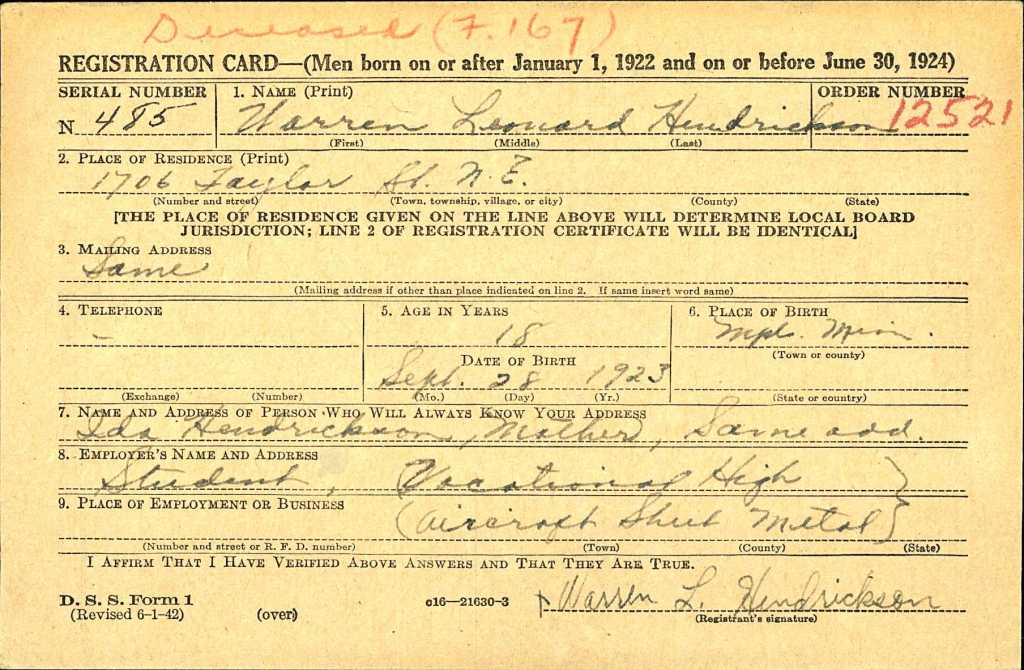 Deceased (F.167)
REGISTRATION CARD—(Men born on or after January 1, 1922 and on or before June 30, 1924)
SERIAL NUMBER 1. NAME (Print) ORDER NUMBER
N 485 Warren Leonard Hendrickson 12521
(First) (Middle) (Last)
2. PLACE OF RESIDENCE (Print)
1706 Taylor St. N.E.
(Number and street) (Town, township, village, or city) (County) (State)
[THE PLACE OF RESIDENCE GIVEN ON THE LINE ABOVE WILL DETERMINE LOCAL BOARD
JURISDICTION; LINE 2 OF REGISTRATION CERTIFICATE WILL BE IDENTICAL]
3. MAILING ADDRESS
Same
(Mailing address if other than place indicated on line 2. If same insert word same)
4. TELEPHONE 5. AGE IN YEARS 6. PLACE OF BIRTH
– 18 Mpls. Minn.
(Town or county)
DATE OF BIRTH
Sept. 28 1923
(Exchange) (Number) (Mo.) (Day) (Yr.) (State or country)
7. NAME AND ADDRESS OF PERSON WHO WILL ALWAYS KNOW YOUR ADDRESS
Ida Hendrickson, Mother, Same add.
8. EMPLOYER'S NAME AND ADDRESS
Student, (Vocational High
9. PLACE OF EMPLOYMENT OR BUSINESS
(Aircraft Sheet Metal)
(Number and street or R. F. D. number) (Town) (County) (State)
I AFFIRM THAT I HAVE VERIFIED ABOVE ANSWERS AND THAT THEY ARE TRUE.
D. S. S. Form 1
(Revised 6-1-42) (over) c16—21630-3 x Warren L. Hendrickson
(Registrant's signature)